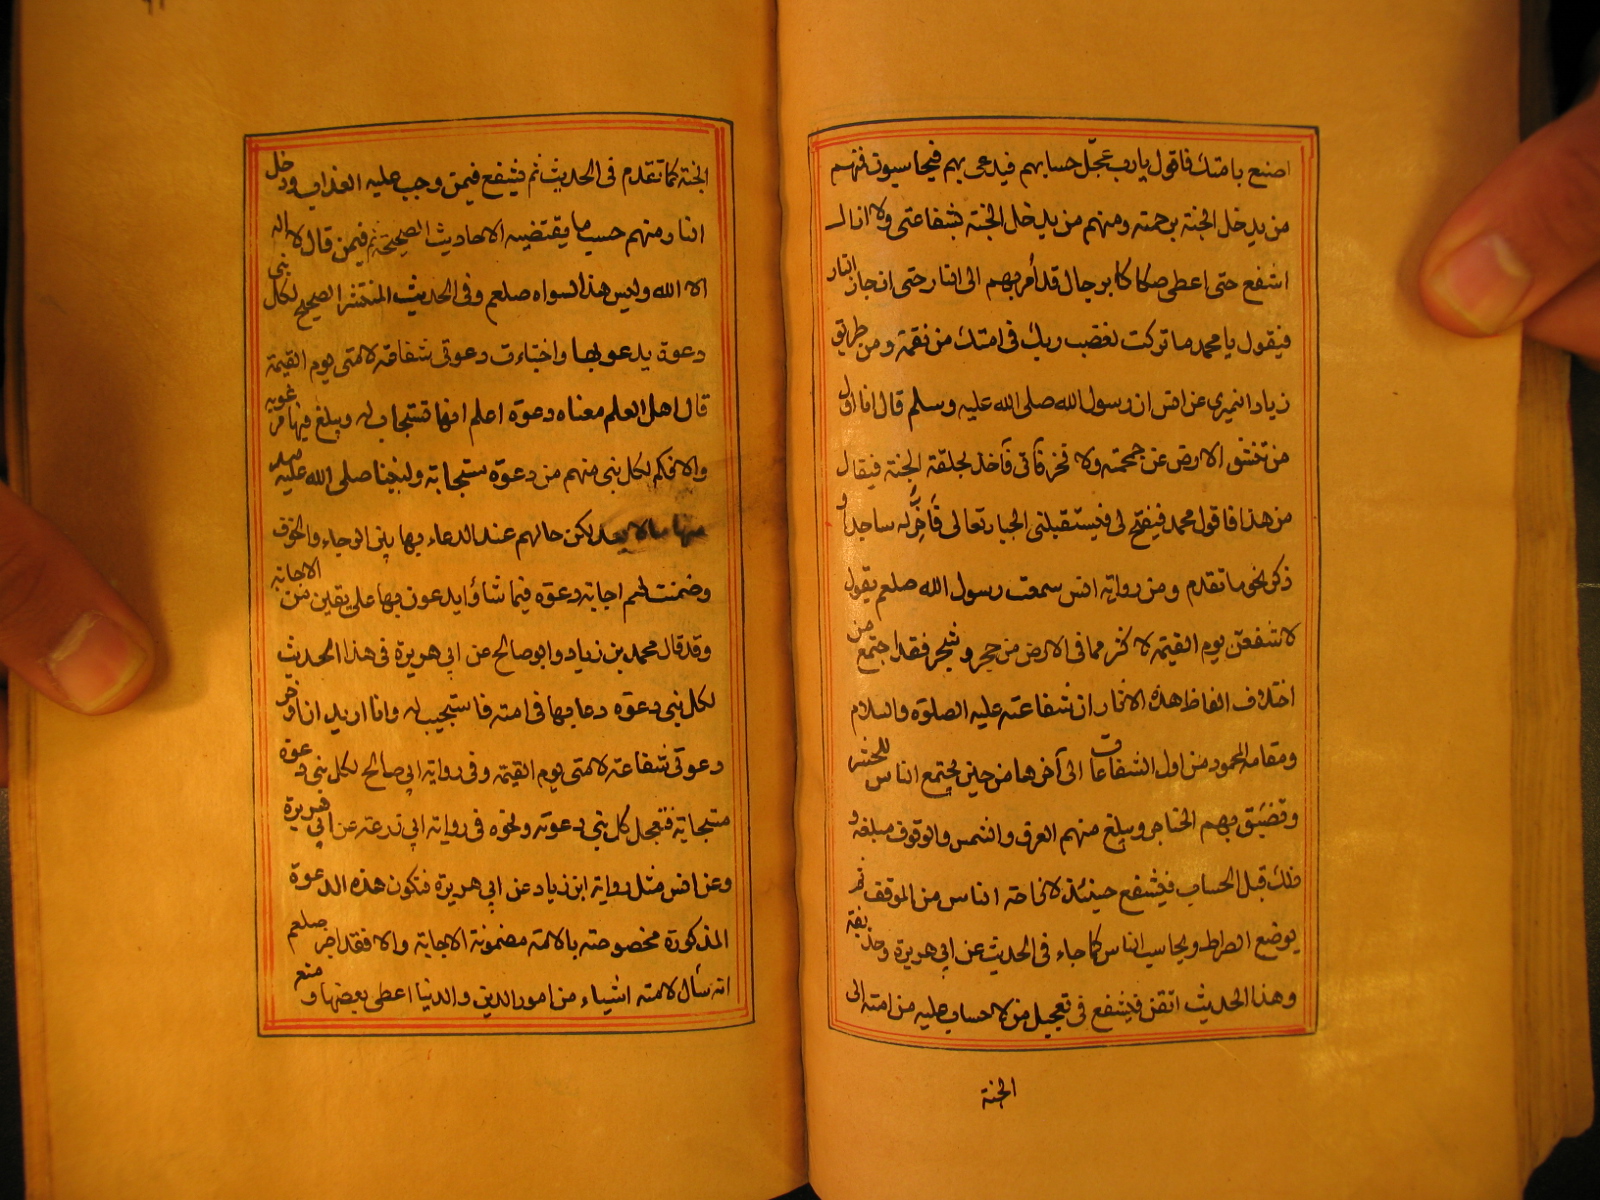 اصنع بامتك فاقول يارب عجّل حسابهم فيدعى بهم فيحاسبون فمنهم
من يدخل الجنة برحمته ومنهم من يدخل الجنة بشفاعتى ولا انال
اشفع حتى اعطى صكاكا برجال قد أمر بهم الى النار حتى ان خازن النار
فيقول يا محمد ما تركت لغضب ربك فى امتك من نقمة ومن طريق
زياد النميرى عن انس ان رسول الله صلى الله عليه وسلم قال انا اول
من تنشق الارض عن جمجمته ولا فخر فآتى فآخذ بحلقة الجنة فيقال
من هذا فاقول محمد فيفتح لى فيستقبلنى الجبار تعالى فأخرّ له ساجدا و
ذكر نحو ما تقدم ومن رواية انس سمعت رسول الله صلعم يقول
لاشفعن يوم القيمة لاكثر مما فى الارض من حجر وشجر فقد اجتمع من
اختلاف الفاظ هذه الاخار ان شفاعته عليه الصلوة والسلام
ومقامه المحمود من اول الشفاعات الى آخرها من حين يجتمع الناس للحشر
وتضيق بهم الحناجر ويبلغ منهم العرق والشمس والوقوف مبلغه و
ذلك قبل الحساب فيشفع حينئذ لاراحة الناس من الموقف ثم
يوضع الصراط ويحاسب الناس كما جاء فى الحديث عن ابى هريرة وحذيفة
وهذا الحديث اتقن فيشفع فى تعجيل من لا حساب عليه من امته الى
الجنة
الجنة كما تقدم فى الحديث ثم يشفع فيمن وجب عليه العذاب ودخل
النار منهم حسب ما يقتضيه الاحاديث الصحيحة ثم فيمن قال لا اله
الا الله وليس هذا لسواه صلعم وفى الحديث المنتشر الصحيح لكل نبى
دعوة يدعو بها واختبات دعوتى شفاعة لامتى يوم القيمة
قال اهل العلم معناه دعوة اعلم انها تستجاب له ويبلغ فيها مرغوبه
والا فكم لكل نبى منهم من دعوة مستجابة ولنبينا صلى الله عليه وسلم
منها ما لا يعد لكن حالهم عند الدعاء بها بين الرجاء والخوف
وضمنت لهم اجابة دعوة فيما شاؤا يدعون بها على يقين من الاجابة
وقد قال محمد بن زياد وابو صالح عن ابى هريرة فى هذا الحديث
لكل نبى دعوة دعا بها فى امته فاستجيب له وانا اريد ان اؤخر
دعوتى شفاعة لامتى يوم القيمة وفى رواية ابى صالح لكل نبى دعوة
مستجابة فتعجل كل نبى دعوته ونحوه فى رواية ابى زرعة عن ابى هريرة
وعن انس مثل رواية ابن زياد عن ابى هريرة فتكون هذه الدعوة
المذكورة مخصوصة بالامة مضمونة الاجابة والا فقد اخبر صلعم
انه سأل لامته اشياء من امور الدين والدنيا اعطى بعضها ومنع